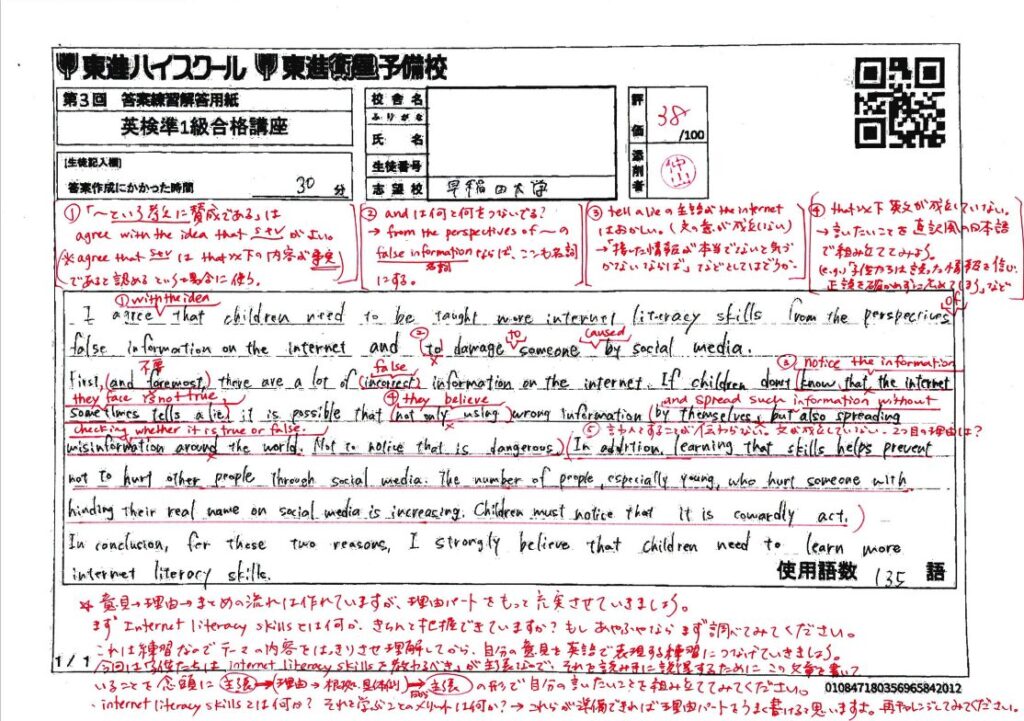 東進ハイスクール 東進衛星予備校
第3回 答案練習解答用紙
英検準1級合格講座
[生徒記入欄]
答案作成にかかった時間 30 分
校舎名
ふりがな
氏名
生徒番号
志望校 早稲田大学
評価 38 /100
添削者
① 「〜という考えに賛成である」は
agree with the idea that SとV がよい。
(※agree that SとV は that以下の内容が事実
であると認めるという場合に使う。
② andは何と何をつないでる?
→ from the perspectives of 〜 の
false information ならば、ここも名詞
名詞
にする。
③ tell a lie の主語が the internet
はおかしい。(文の意が成立しない)
→「接した情報が本当でないと気づ
かないならば」などとしてはどうか。
④ that以下 英文が成立していない。
→ 言いたいことを直訳風の日本語
で組み立ててみよう。
(e.g.)「子供たちは誤った情報を信じ、
正誤を確かめずに広めてしまう」など
① with the idea
of
I agree that children need to be taught more internet literacy skills from the perspectives
② to caused
false information on the internet and to damage someone by social media.
不要 false ③ notice the information
First, (and foremost,) there are a lot of (incorrect) information on the internet. If children don't know that the internet
they face is not true, ④ they believe and spread such information without
sometimes tells a lie, it is possible that (not only using) wrong information (by themselves, but also spreading
checking whether it is true or false. ⑤ 言わんとすることが伝わらない。文が成立していない。2つ目の理由は?
misinformation around the world. Not to notice that is dangerous.) (In addition, learning that skills helps prevent
not to hurt other people through social media. The number of people, especially young, who hurt someone with
hinding their real name on social media is increasing. Children must notice that it is cowardly act.)
In conclusion, for these two reasons, I strongly believe that children need to learn more
internet literacy skills.
使用語数 135 語
* 意見→理由→まとめの流れは作れていますが、理由パートをもっと充実させていきましょう。
まず Internet literacy skills とは何か、きちんと把握できていますか? もしあやふやなら まず調べてみてください。
これは練習なのでテーマの内容をはっきりさせ理解してから、自分の意見を英語で表現する練習につなげていきましょう。
今回は「子供たちは internet literacy skills を教わるべき」が主張なので、それを読み手に説得するためにこの文章を書いて
いることを念頭に 主張→(理由→根拠、具体例)→主張 の形で自分の言いたいことを組み立ててみてください。
internet literacy skills とは何か? それを学ぶことのメリットは何か? → これらが準備できれば理由パートをうまく書けると思います。再チャレンジしてみてください。
1 / 1
010847180356965842012